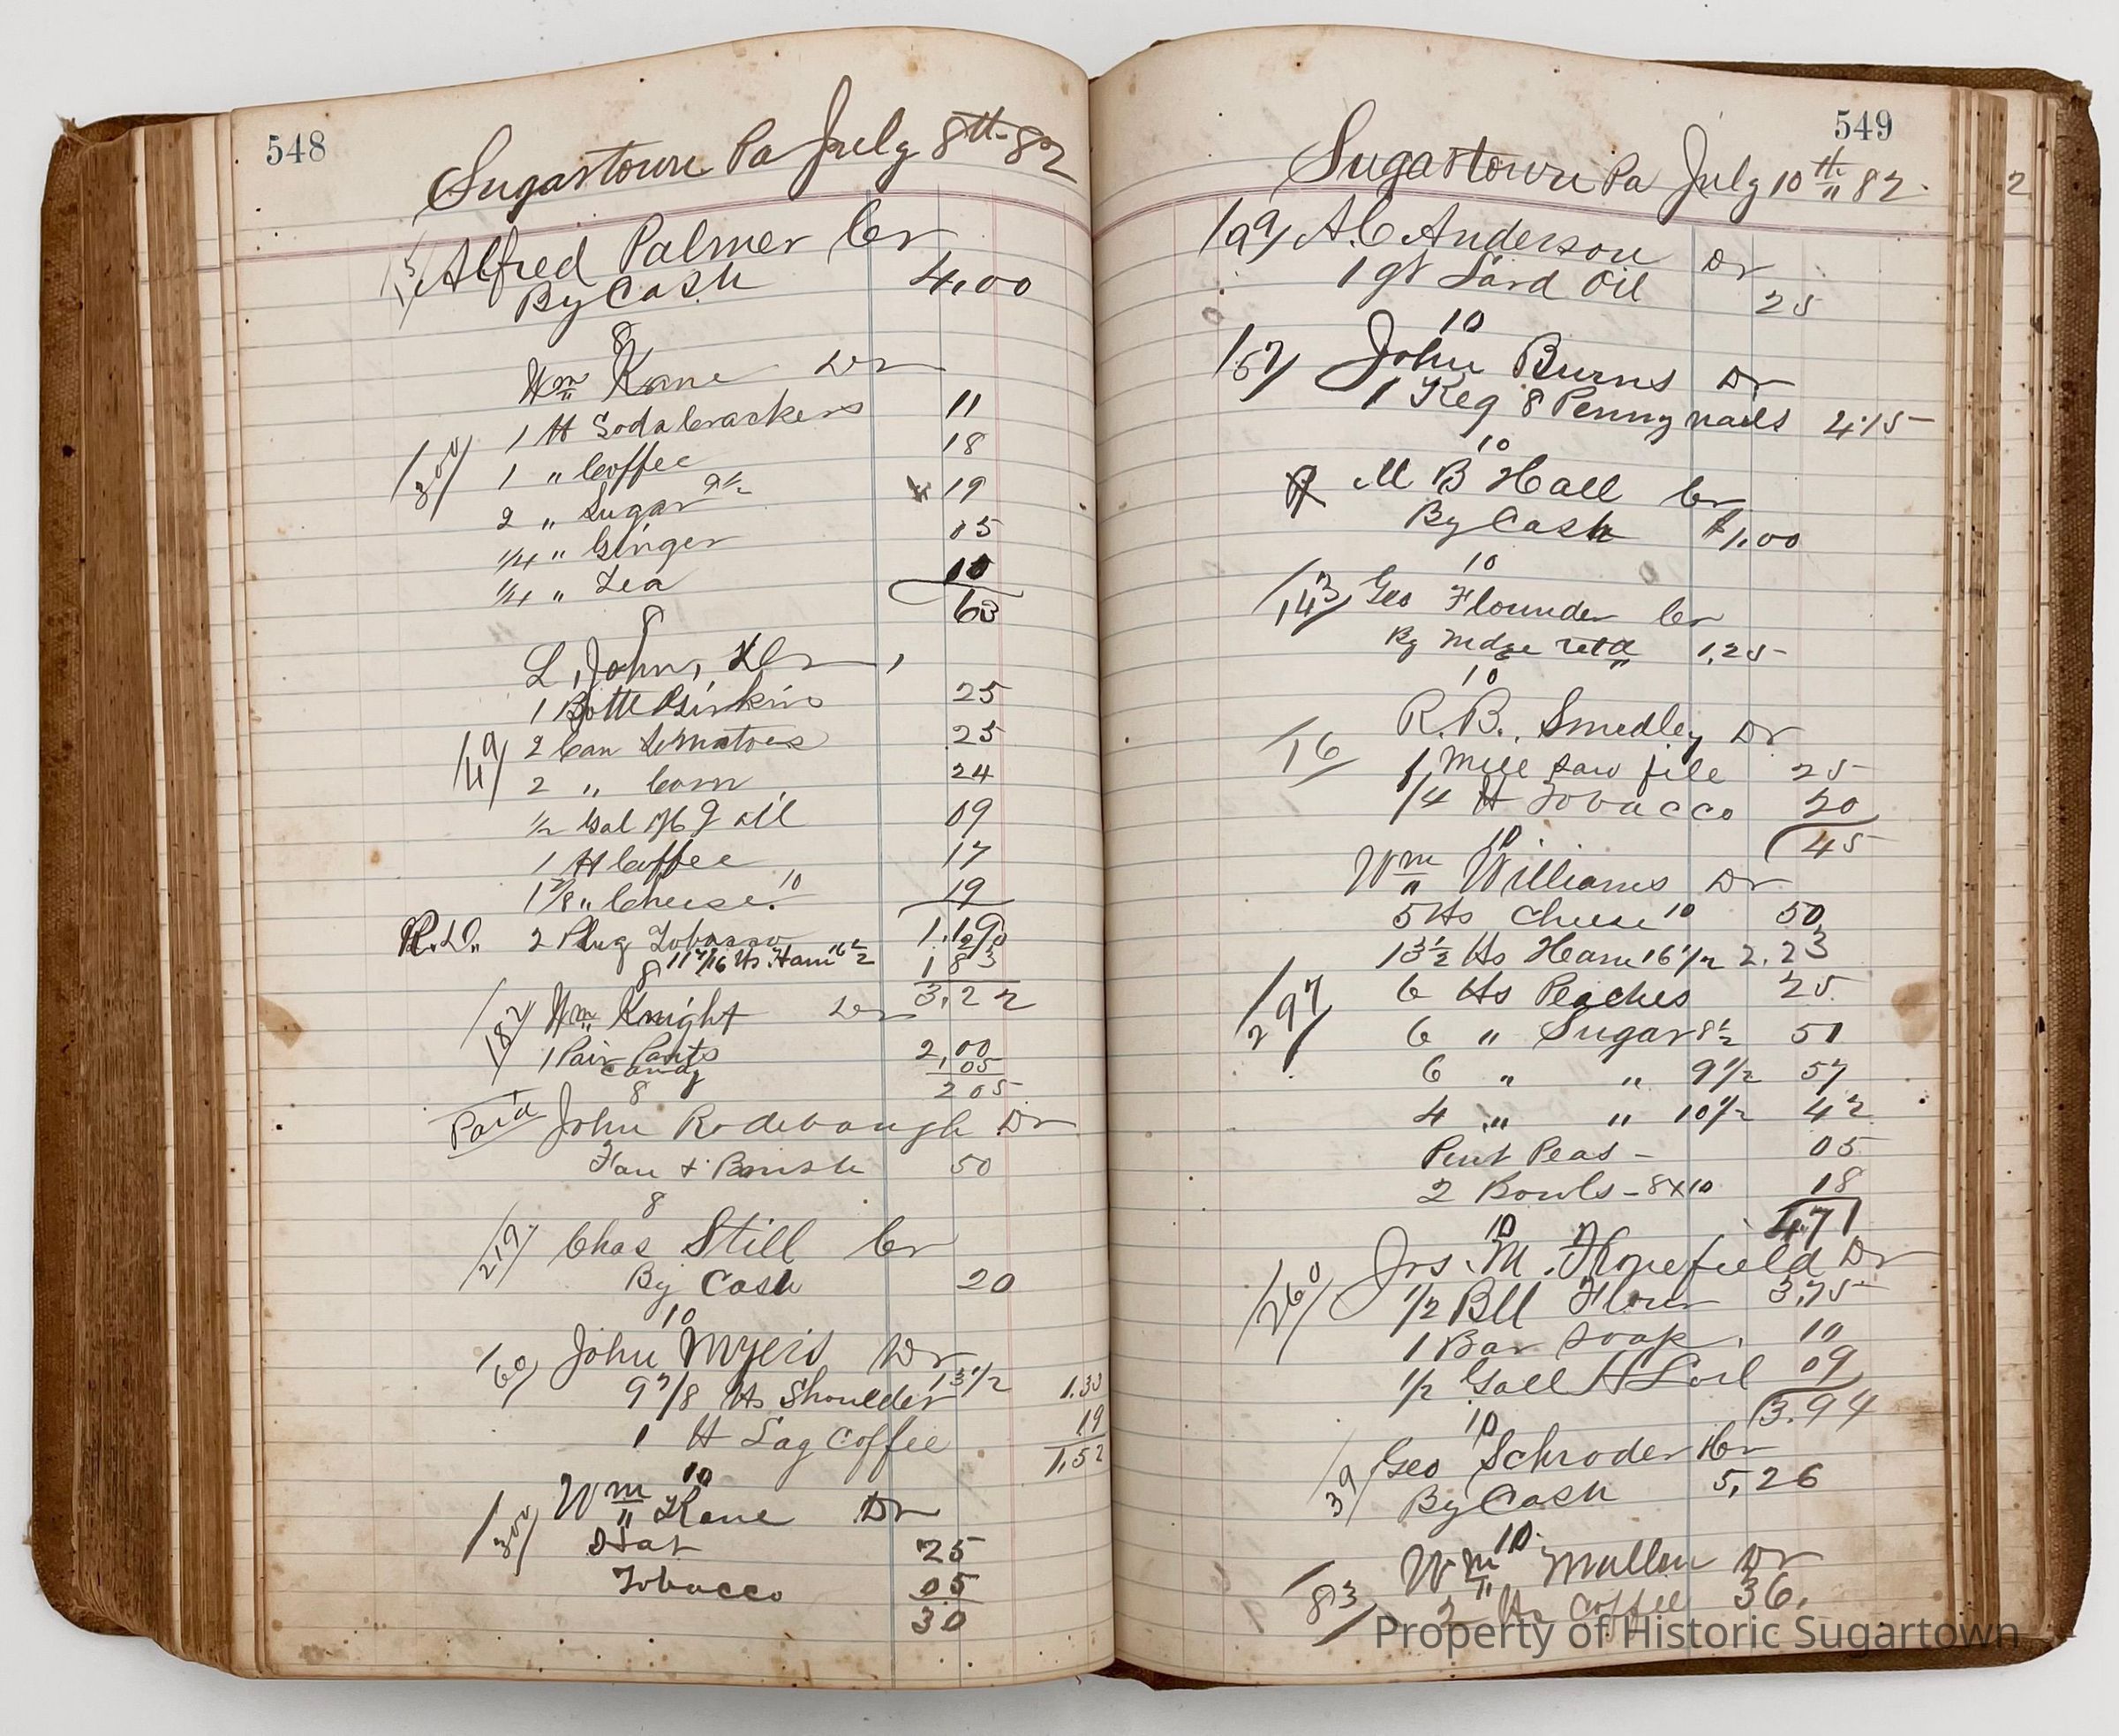 548
Sugartown Pa July 8th 82
Alfred Palmer Cr
By Cash 4.00
8
Wm Kane Dr
1 lb Soda Crackers 11
/300/ 1 " Coffee 18
2 " Sugar 9½ 19
¼ " Ginger 05
¼ " Tea 10
63
8
L, John, Dr
1 Bottle Girkins 25
/49/ 2 Can tomatoes 25
2 " Corn 24
½ Gal oil 09
1 lb Coffee 17
1 7/8 " Cheese 10 19
R.D. 2 Plug Tobacco
11 7/16 lbs Ham 16½ 183
8 3,22
/182/ Wm Knight Dr
1 Pair Pants 2,00
Candy 05
8 205
Paid John Rodebaugh Dr
Fan & Brush 50
8
/219/ Chas Still Cr
By Cash 20
10
/60/ John Myers Dr
9 7/8 lbs Shoulder 13½ 1.33
1 lb Lag Coffee 19
1,52
10
/300/ Wm Kane Dr
Hat 25
Tobacco 05
30
549
Sugartown Pa July 10th 82
/99/ A.C Anderson Dr
1 qt Lard Oil 25
10
/57/ John Burns Dr
1 Keg 8 Penny nails 4.15
10
M B Hall Cr
By Cash $1.00
10
/143/ Geo Flounder Cr
By mdse retd 1.25
10
R.B. Smedley Dr
/16/ 1 Mill saw file 25
1/4 lb Tobacco 20
10 45
Wm Williams Dr
5 lbs Cheese 10 50
13½ lbs Ham 16½ 2.23
/297/ 6 lbs Peaches 25
6 " Sugar 8½ 51
6 " " 9½ 57
4 " " 10½ 42
Pint Peas - 05
2 Bowls - 8x10 18
10 4.71
/260/ Jos. M. Thonefield Dr
1/2 Bll Flour 3.75
1 Bar soap. 10
½ Gall H L oil 09
10 3.94
/39/ Geo Schroder Cr
By Cash 5,26
10
/83/ Wm Mullen Dr
2 lbs Coffee 36.
Property of Historic Sugartown
2